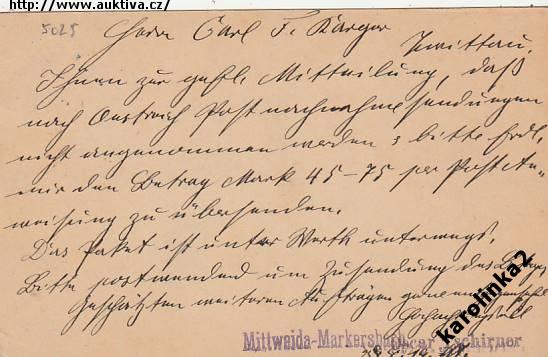 http://www.auktiva.cz/
5025
Herrn Carl F. Karger
Zwittau.
Ihnen zur gefl. Mitteilung, daß
nach Oestreich Postnachnahmesendungen
nicht angenommen werden & bitte
mir den Betrag Mark 45–75 per Post An-
weisung zu übersenden.
Das Paket ist unter Werth unterwegs.
Bitte postwendend um Zusendung des
Geschätzten weiteren Aufträgen
Hochachtungsvoll
Mittweida-Markersbach
karolinka2